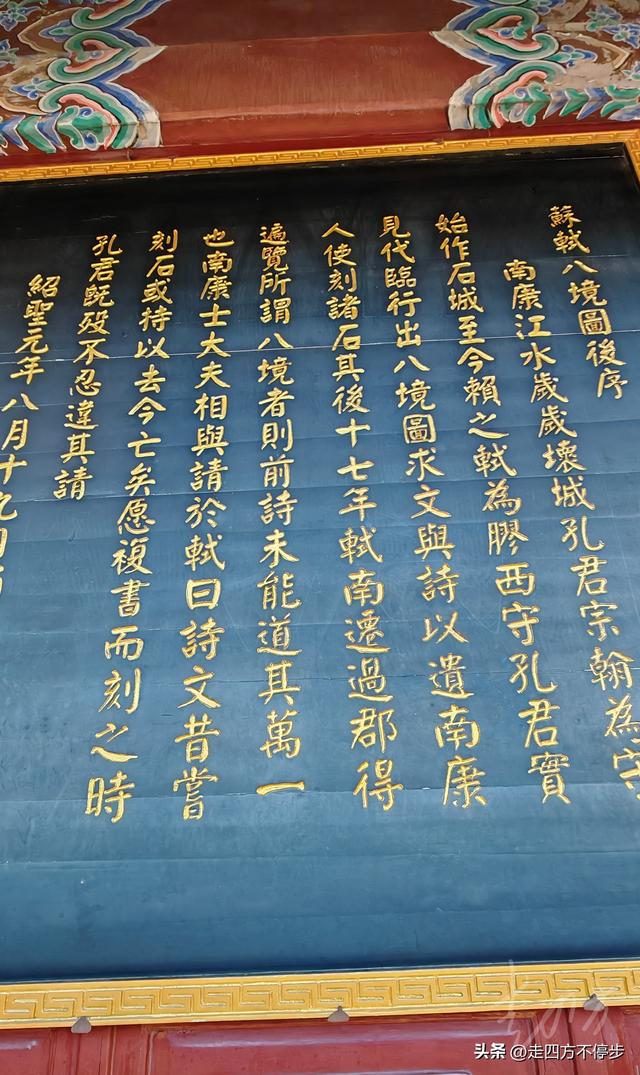 蘇軾八境圖後序
南康江水歲歲壞城孔君宗翰為守
始作石城至今賴之軾為膠西守孔君實
見代臨行出八境圖求文與詩以遺南康
人使刻諸石其後十七年軾南遷過郡得
遍覽所謂八境者則前詩未能道其萬一
也南康士大夫相與請於軾曰詩文昔嘗
刻石或持以去今亡矣愿複書而刻之時
孔君既歿不忍違其請
紹聖元年八月十九日
头条 @走四方不停步